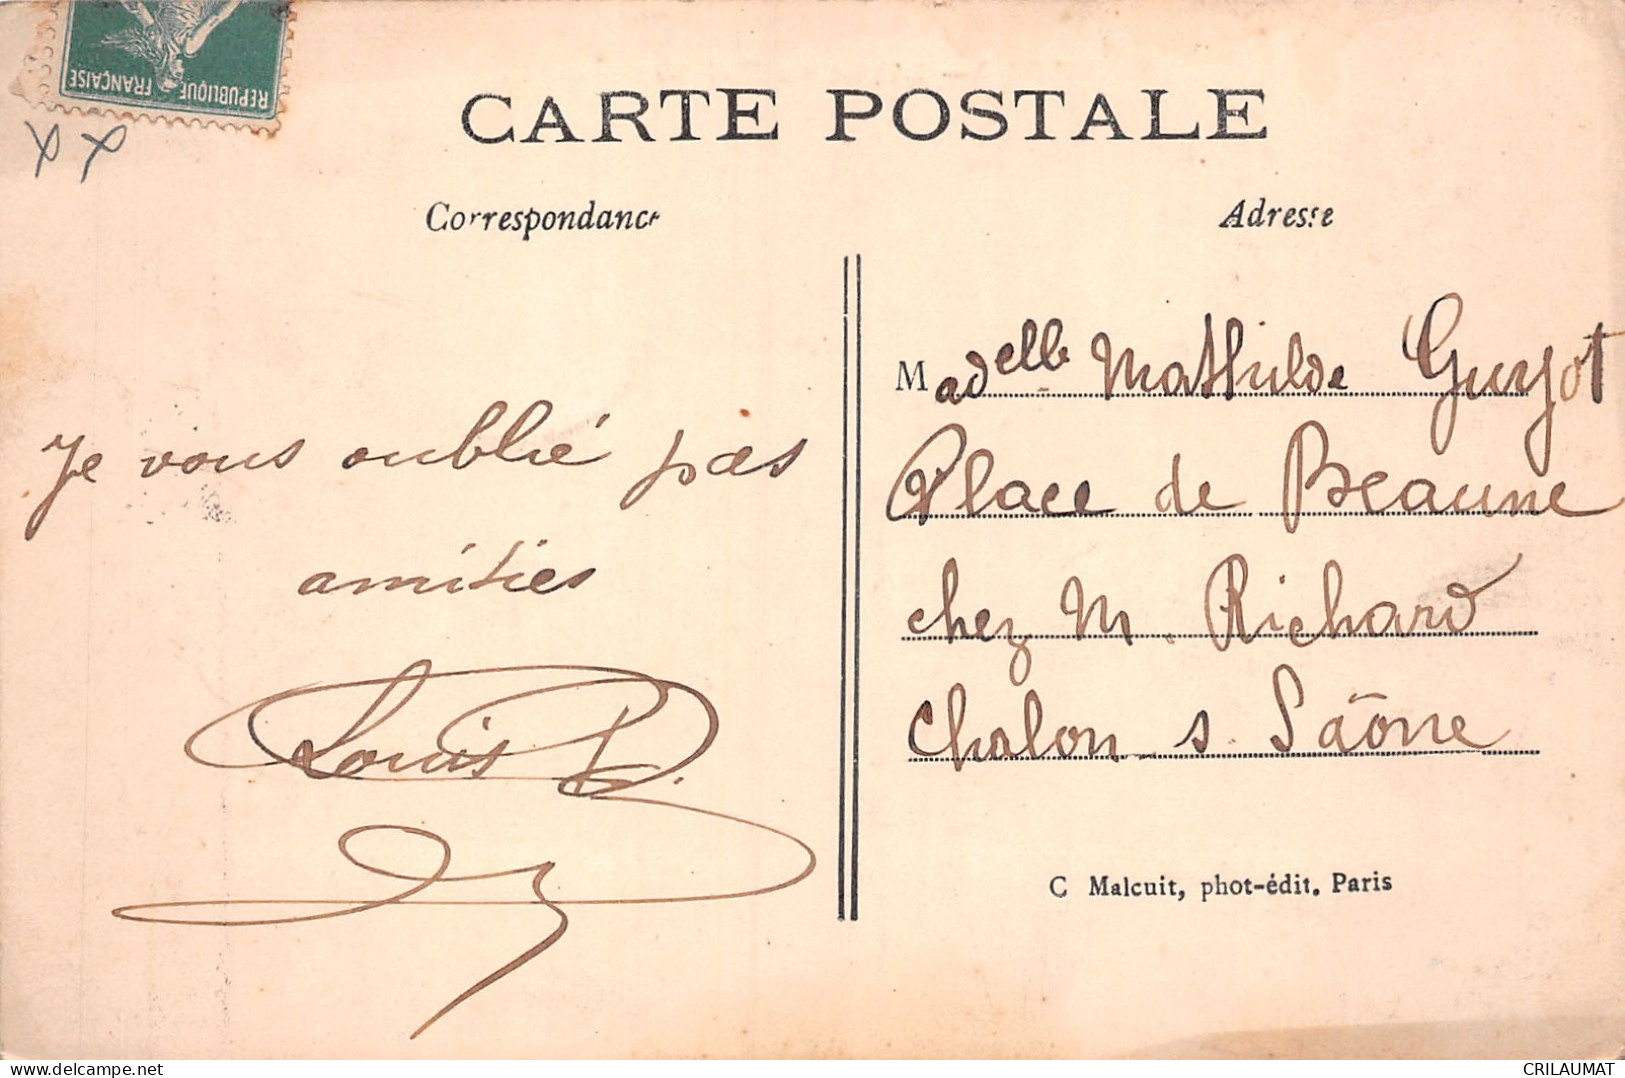 REPUBLIQUE FRANÇAISE
xx
CARTE POSTALE
Correspondance
Adresse
Je vous oublié pas
amitiés
Louis D.
Madelle Mathilde Guyot
Place de Beaune
chez M. Richard
Chalon s. Saône
C Malcuit, phot-édit. Paris
delcampe.net
CRILAUMAT